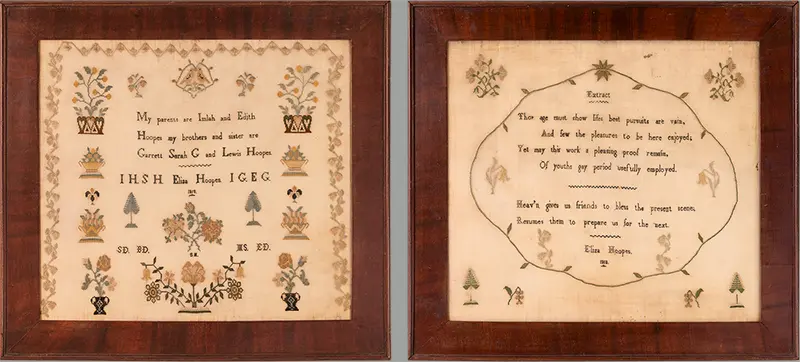 My parents are Imlah and Edith
Hoopes my brothers and sister are
Garrett Sarah G and Lewis Hoopes.
I H. S H Eliza Hoopes I G. E G.
S D. B D. M S. E D.
Extract
Tho' age must show lifes best pursuits are vain,
And few the pleasures to be here enjoyed;
Yet may this work a pleasing proof remain,
Of youths gay period usefully employed.
Heav'n gives us friends to bless the present scene;
Resumes them to prepare us for the next.
Eliza Hoopes.